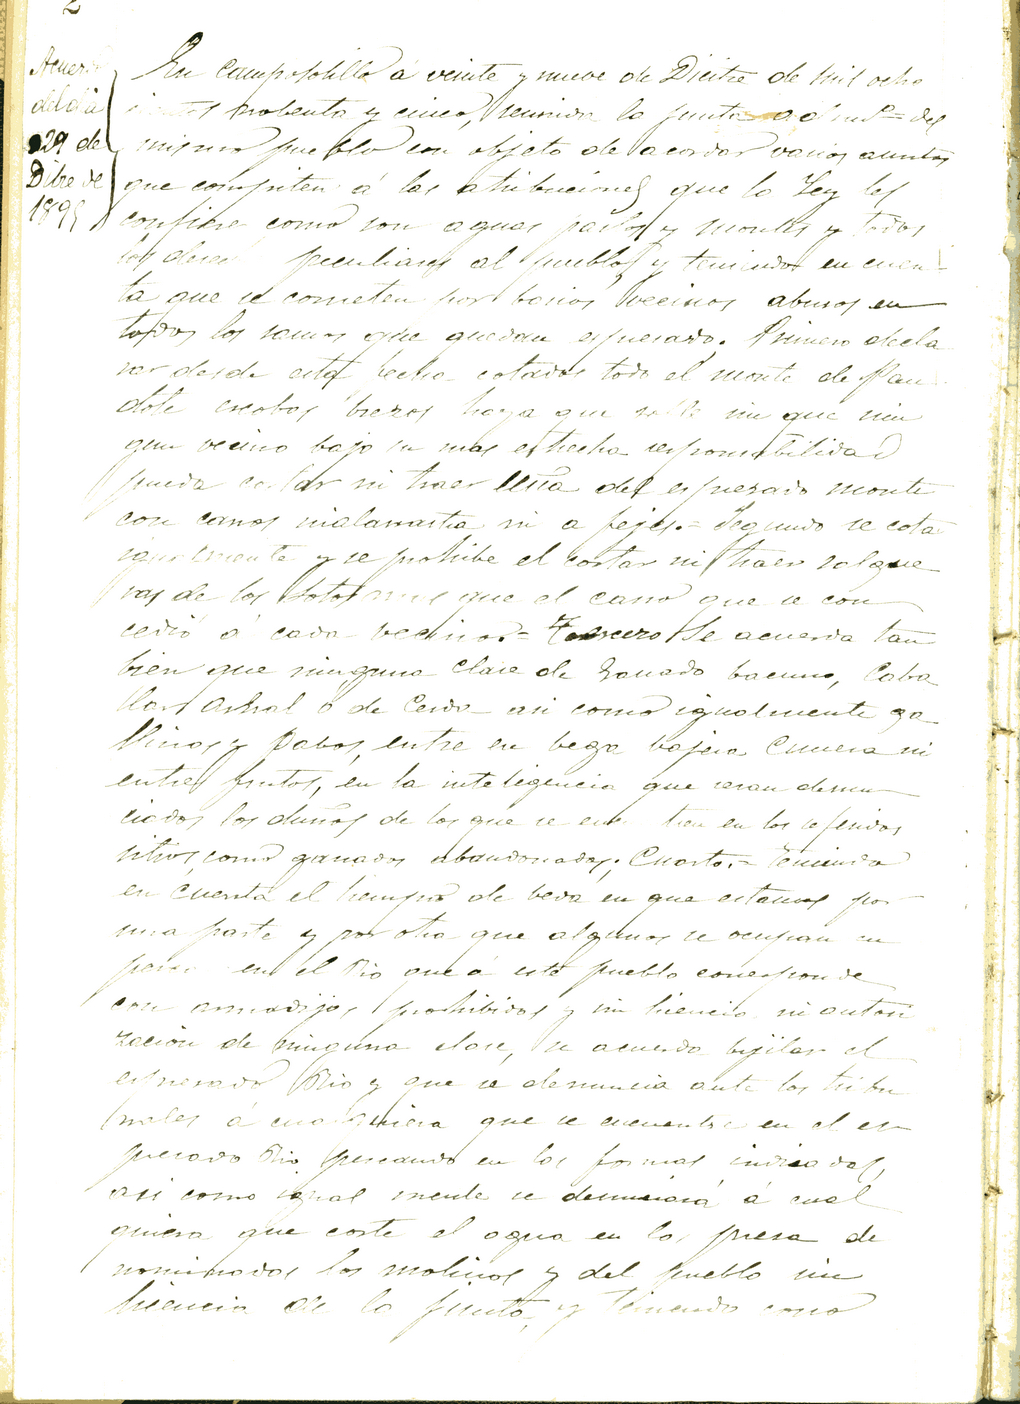 2
Acuerdo
del dia
29 de
Dibre de
1895
En Camposolillo á veinte y nueve de Dicitre de mil ocho
cientos nobenta y cinco, reunida la junta admª del
mismo pueblo con objeto de acordar varios asuntos
que compiten á las atribuciones que la Ley les
confiere como son aguas pastos y montes y todos
los peculiares al pueblo, y teniendo en cuen
ta que se cometen por barios vecinos abusos en
todos los ramos que quedan espresado. Primero decla
rar desde esta fecha cotados todo el monte de Pan
dote escobas brezos haya que roble sin que nin
gun vecino bajo su mas estrecha responsabilidad
pueda cortar ni traer leña del espresado monte
con carros ni a fejes.= Segundo se cota
igualmente y se prohibe el cortar ni traer salgue
ras de los sotos mas que el carro que se con
cedió á cada vecino.= Tercero Se acuerda tan
bien que ninguna clase de Ganado bacuno, Caba
llar Asnal ó de Cerda asi como igualmente ga
llinas y Pabos, entre en bega bajera ni
entre frutos, en la inteligencia que seran denun
ciados los dueños de los que se encuentren en los referidos
sitios como ganados abandonados; Cuarto.= Teniendo
en cuenta el tiempo de beda en que estamos por
una parte y por otra que algunos se ocupan en
pescar en el Rio que á este pueblo corresponde
con armadijos prohibidos y sin licencia ni autori
zación de ninguna clase, se acuerda bijilar el
espresado Rio y que se denuncia ante los tribu
nales á cualquiera que se encuentre en el es
presado Rio pescando en las formas indicadas,
asi como igual mente se denunciará á cual
quiera que corte el agua en las presa de
nominadas los molinos y del pueblo sin
licencia de la junta, y teniendo como